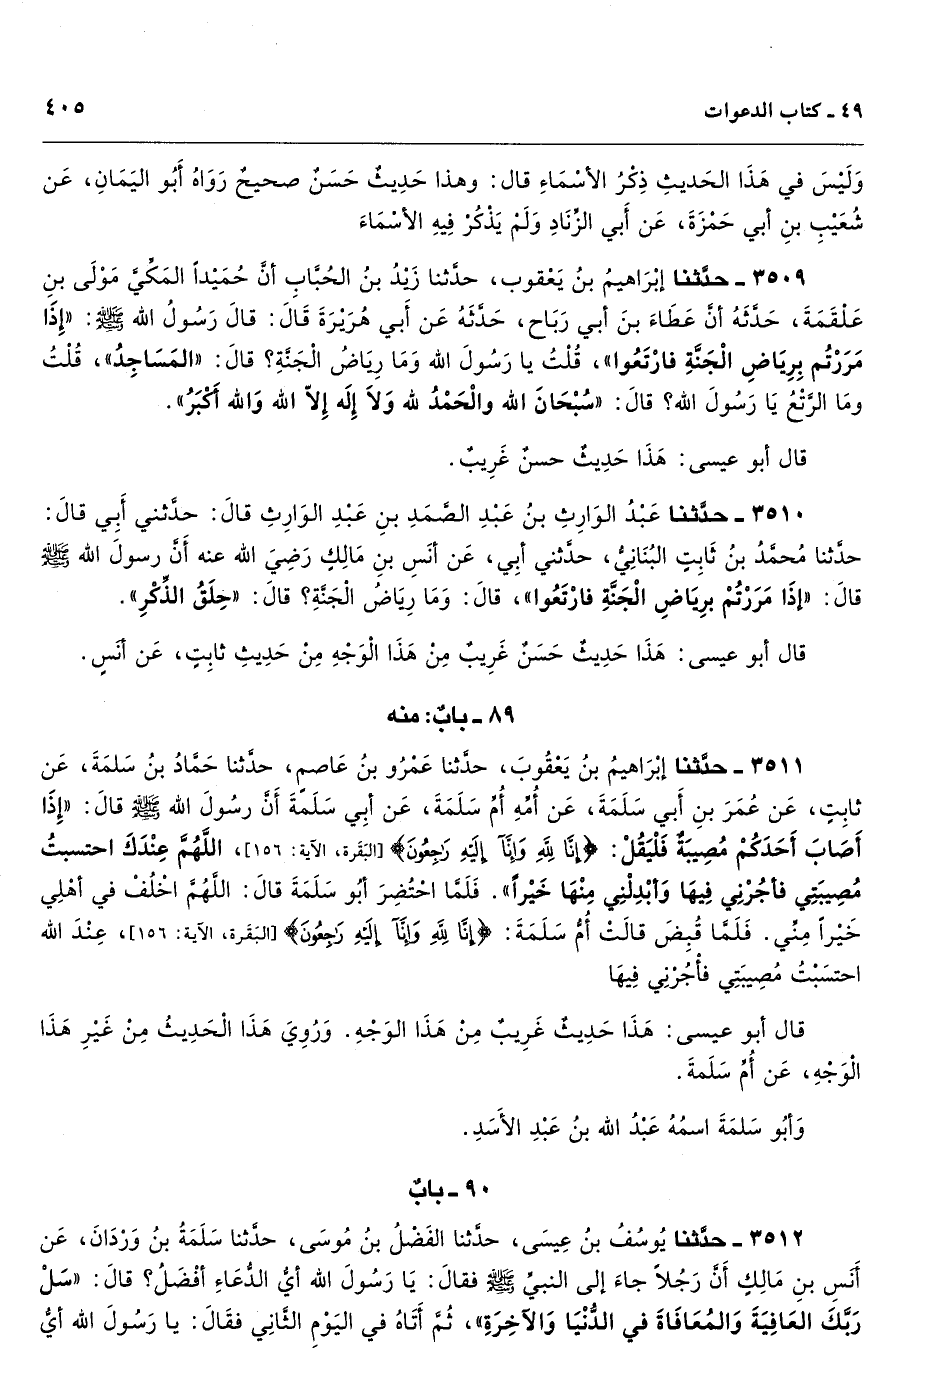 ٤٩ ـ كتاب الدعوات
٤٠٥
وَلَيْسَ في هَذَا الحَديثِ ذِكْرُ الأسْمَاءِ قال: وهذا حَدِيثٌ حَسَنٌ صحيحٌ رَوَاهُ أَبُو اليَمَانِ، عَن
شُعَيْبِ بنِ أبي حَمْزَةَ، عَن أَبي الزِّنَادِ وَلَمْ يَذْكُرْ فِيهِ الأسْمَاءَ
٣٥٠٩ ـ حدَّثنا إبْرَاهِيمُ بنُ يَعْقوب، حدَّثنا زَيْدُ بنُ الحُبَّابِ أنَّ حُمَيْداً المَكِّيَّ مَوْلَى بنِ
عَلْقَمَةَ، حَدَّثَهُ أنَّ عَطَاءَ بنَ أبي رَبَاحٍ، حَدَّثَهُ عَن أبي هُرَيْرَةَ قَالَ: قالَ رَسُولُ الله ﷺ: «إذَا
مَرَرْتُم بِرِيَاضِ الْجَنَّةِ فارْتَعُوا»، قُلْتُ يا رَسُولَ الله وَمَا رِيَاضُ الْجَنَّةِ؟ قالَ: «المَسَاجِدُ»، قُلْتُ
ومَا الرَّتْعُ يَا رَسُولَ الله؟ قالَ: «سُبْحَانَ الله والْحَمْدُ لله وَلاَ إلَه إلاّ الله وَالله أَكْبَرُ».
قال أبو عيسى: هَذَا حَدِيثٌ حسنٌ غَرِيبٌ.
٣٥١٠ ـ حدَّثنا عَبْدُ الوَارِثِ بنُ عَبْدِ الصَّمَدِ بنِ عَبْدِ الوَارِثِ قالَ: حدَّثني أَبي قالَ:
حدَّثنا مُحمَّدُ بنُ ثَابِتٍ البُنَانِيُّ، حدَّثني أبي، عَن أنَسِ بنِ مَالِكٍ رَضِيَ الله عنه أنَّ رسولَ الله ﷺ
قالَ: «إذَا مَرَرْتُمْ بِرِيَاضِ الْجَنَّةِ فارْتَعُوا»، قالَ: وَمَا رِيَاضُ الْجَنَّةِ؟ قالَ: «حِلَقُ الذِّكْرِ».
قال أبو عيسى: هَذَا حَدِيثٌ حَسَنٌ غَرِيبٌ مِنْ هَذَا الْوَجْهِ مِنْ حَدِيثِ ثابِتٍ، عَن أنَسٍ.
٨٩ ـ بابٌ: منه
٣٥١١ ـ حدَّثنا إبْرَاهِيمُ بنُ يَعْقُوبَ، حدَّثنا عَمْرُو بنُ عاصِمٍ، حدَّثنا حَمَّادُ بنُ سَلَمَةَ، عَن
ثابِتٍ، عَن عُمَرَ بنِ أبي سَلَمَةَ، عَن أُمِّهِ أُمِّ سَلَمَةَ، عَن أبي سَلَمَةَ أنَّ رسُولَ الله ﷺ قالَ: «إذَا
أصَابَ أحَدَكُمْ مُصِيبَةٌ فَلْيَقُلْ: ﴿إنَّا لِلَّهِ وَإنَّآ إلَيْهِ رَٰجِعُونَ﴾ [البَقَرَة، الآية: ١٥٦]، اللَّهُمَّ عِنْدَكَ احتسبتُ
مُصِيبَتِي فأجُرْنِي فِيهَا وَأبْدِلْنِي مِنْهَا خَيْراً». فَلَمَّا احْتُضِرَ أبُو سَلَمَةَ قالَ: اللَّهُمَّ اخْلُفْ في أهْلِي
خَيْراً مِنِّي. فَلَمَّا قُبِضَ قالَتْ أُمُّ سَلَمَةَ: ﴿إنَّا لِلَّهِ وَإنَّآ إلَيْهِ رَٰجِعُونَ﴾ [البَقَرَة، الآية: ١٥٦]، عِنْدَ الله
احتسَبْتُ مُصِيبَتِي فأْجُرْنِي فِيهَا
قال أبو عيسى: هَذَا حَدِيثٌ غَرِيبٌ مِنْ هَذَا الوَجْهِ. وَرُوِيَ هَذَا الْحَدِيثُ مِنْ غَيْرِ هَذَا
الْوَجْهِ، عَن أُمِّ سَلَمةَ.
وَأبُو سَلَمَةَ اسمُهُ عَبْدُ الله بنُ عَبْدِ الأَسَدِ.
٩٠ ـ بابٌ
٣٥١٢ ـ حدَّثنا يُوسُفُ بنُ عِيسَى، حدَّثنا الفَضْلُ بنُ مُوسَى، حدَّثنا سَلَمَةُ بنُ وَرْدَانَ، عَن
أَنَسِ بنِ مَالِكٍ أنَّ رَجُلاً جاءَ إلى النبيِّ ﷺ فقالَ: يَا رَسُولَ الله أيُّ الدُّعَاءِ أفْضَلُ؟ قالَ: «سَلْ
رَبَّكَ العَافِيَةَ وَالمُعَافَاةَ في الدُّنْيَا وَالآخِرَةِ»، ثُمَّ أَتَاهُ في اليَوْمِ الثَّانِي فقَالَ: يا رَسُولَ الله أيُّ